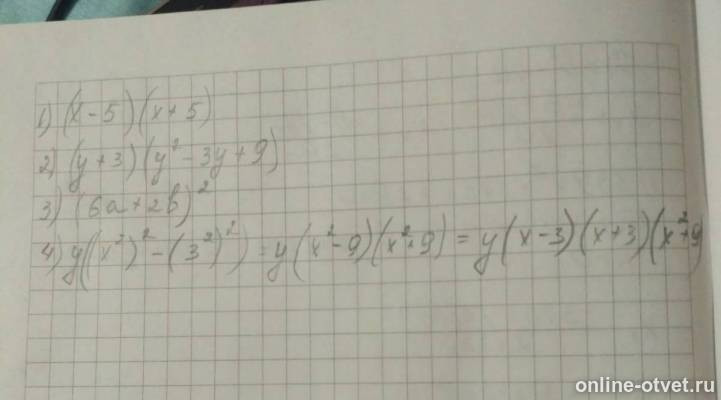 1) (x-5)(x+5)
2) (y+3)(y²-3y+9)
3) (6a+2b)²
4) y((x²)²-(3²)²) = y(x²-9)(x²+9) = y(x-3)(x+3)(x²+9)
online-otvet.ru